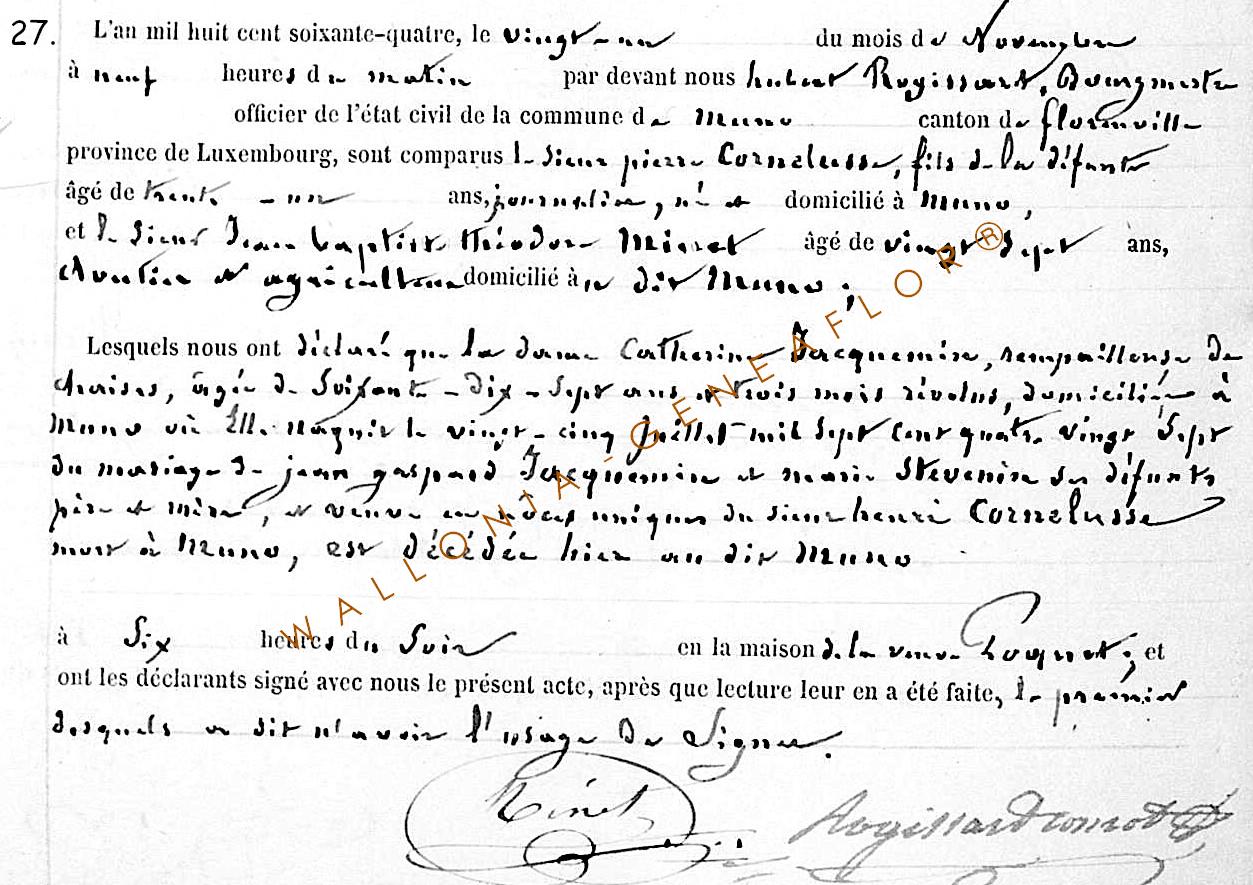 27. L'an mil huit cent soixante-quatre, le vingt-un du mois de Novembre
à neuf heures du matin par devant nous hubert Rogissart, Bourgmestre
officier de l'état civil de la commune de Muno canton de florenville
province de Luxembourg, sont comparus le sieur pierre Cornelusse, fils de la défunte
âgé de trente-un ans, journalier, né et domicilié à Muno,
et le sieur Jean baptiste théodore âgé de vingt sept ans,
d'agriculteur domicilié au dit Muno;
Lesquels nous ont déclaré que la dame Catherine Jacquemin, rempailleuse de
chaises, âgée de soixante-dix-sept ans et trois mois révolus, domiciliée à
Muno où Elle naquit le vingt-cinq Juillet mil sept cent quatre vingt sept
du mariage de jean gaspard Jacquemin et marie Stevenin ses défunts
père et mère, et veuve en nôces uniques du sieur henri Cornelusse
mort à Muno, est décédée hier au dit Muno
à Six heures du Soir en la maison de la veuve ; et
ont les déclarants signé avec nous le présent acte, après que lecture leur en a été faite, le premier
desquels a dit n'avoir l'usage de signer.
Rogissart
WALLONIA-GENEAFLOR®